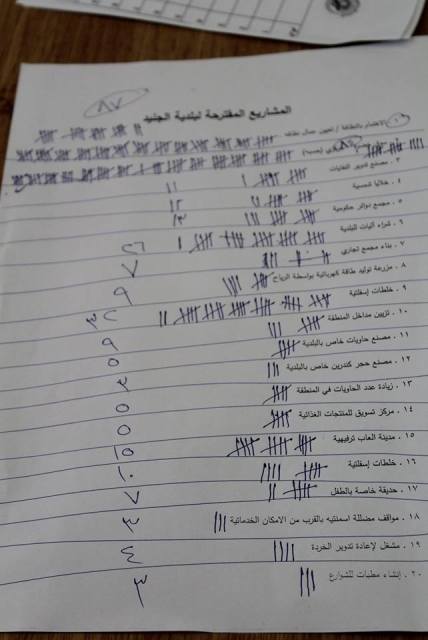 ٨٧
المشاريع المقترحة لبلدية الجنيد
١ . الاهتمام بالنظافة / تعيين عمال نظافة
٣ . مصنع تدوير النفايات ١١
٤ . خلايا شمسية ١٢
٥ . مجمع دوائر حكومية ١٣
٦ . شراء اليات للبلدية ٢٦
٧ . بناء مجمع تجاري ٧
٨ . مزرعة توليد طاقة كهربائية بواسطة الرياح ٩
٩ . خلطات إسفلتية ٣٢
١٠ . تزيين مداخل المنطقة ٩
١١ . مصنع حاويات خاص بالبلدية ٥
١٢ . مصنع حجر كندرين خاص بالبلدية ٣
١٣ . زيادة عدد الحاويات في المنطقة ٥
١٤ . مركز تسويق للمنتجات الغذائية ٥
١٥ . مدينة العاب ترفيهية ١٥
١٦ . خلطات إسفلتية ١٠
١٧ . حديقة خاصة بالطفل ٧
١٨ . مواقف مضللة اسمنتيه بالقرب من الامكان الخدماتية ٣
١٩ . مشغل لإعادة تدوير الخردة ٤
٢٠ . إنشاء مطبات للشوارع ٣